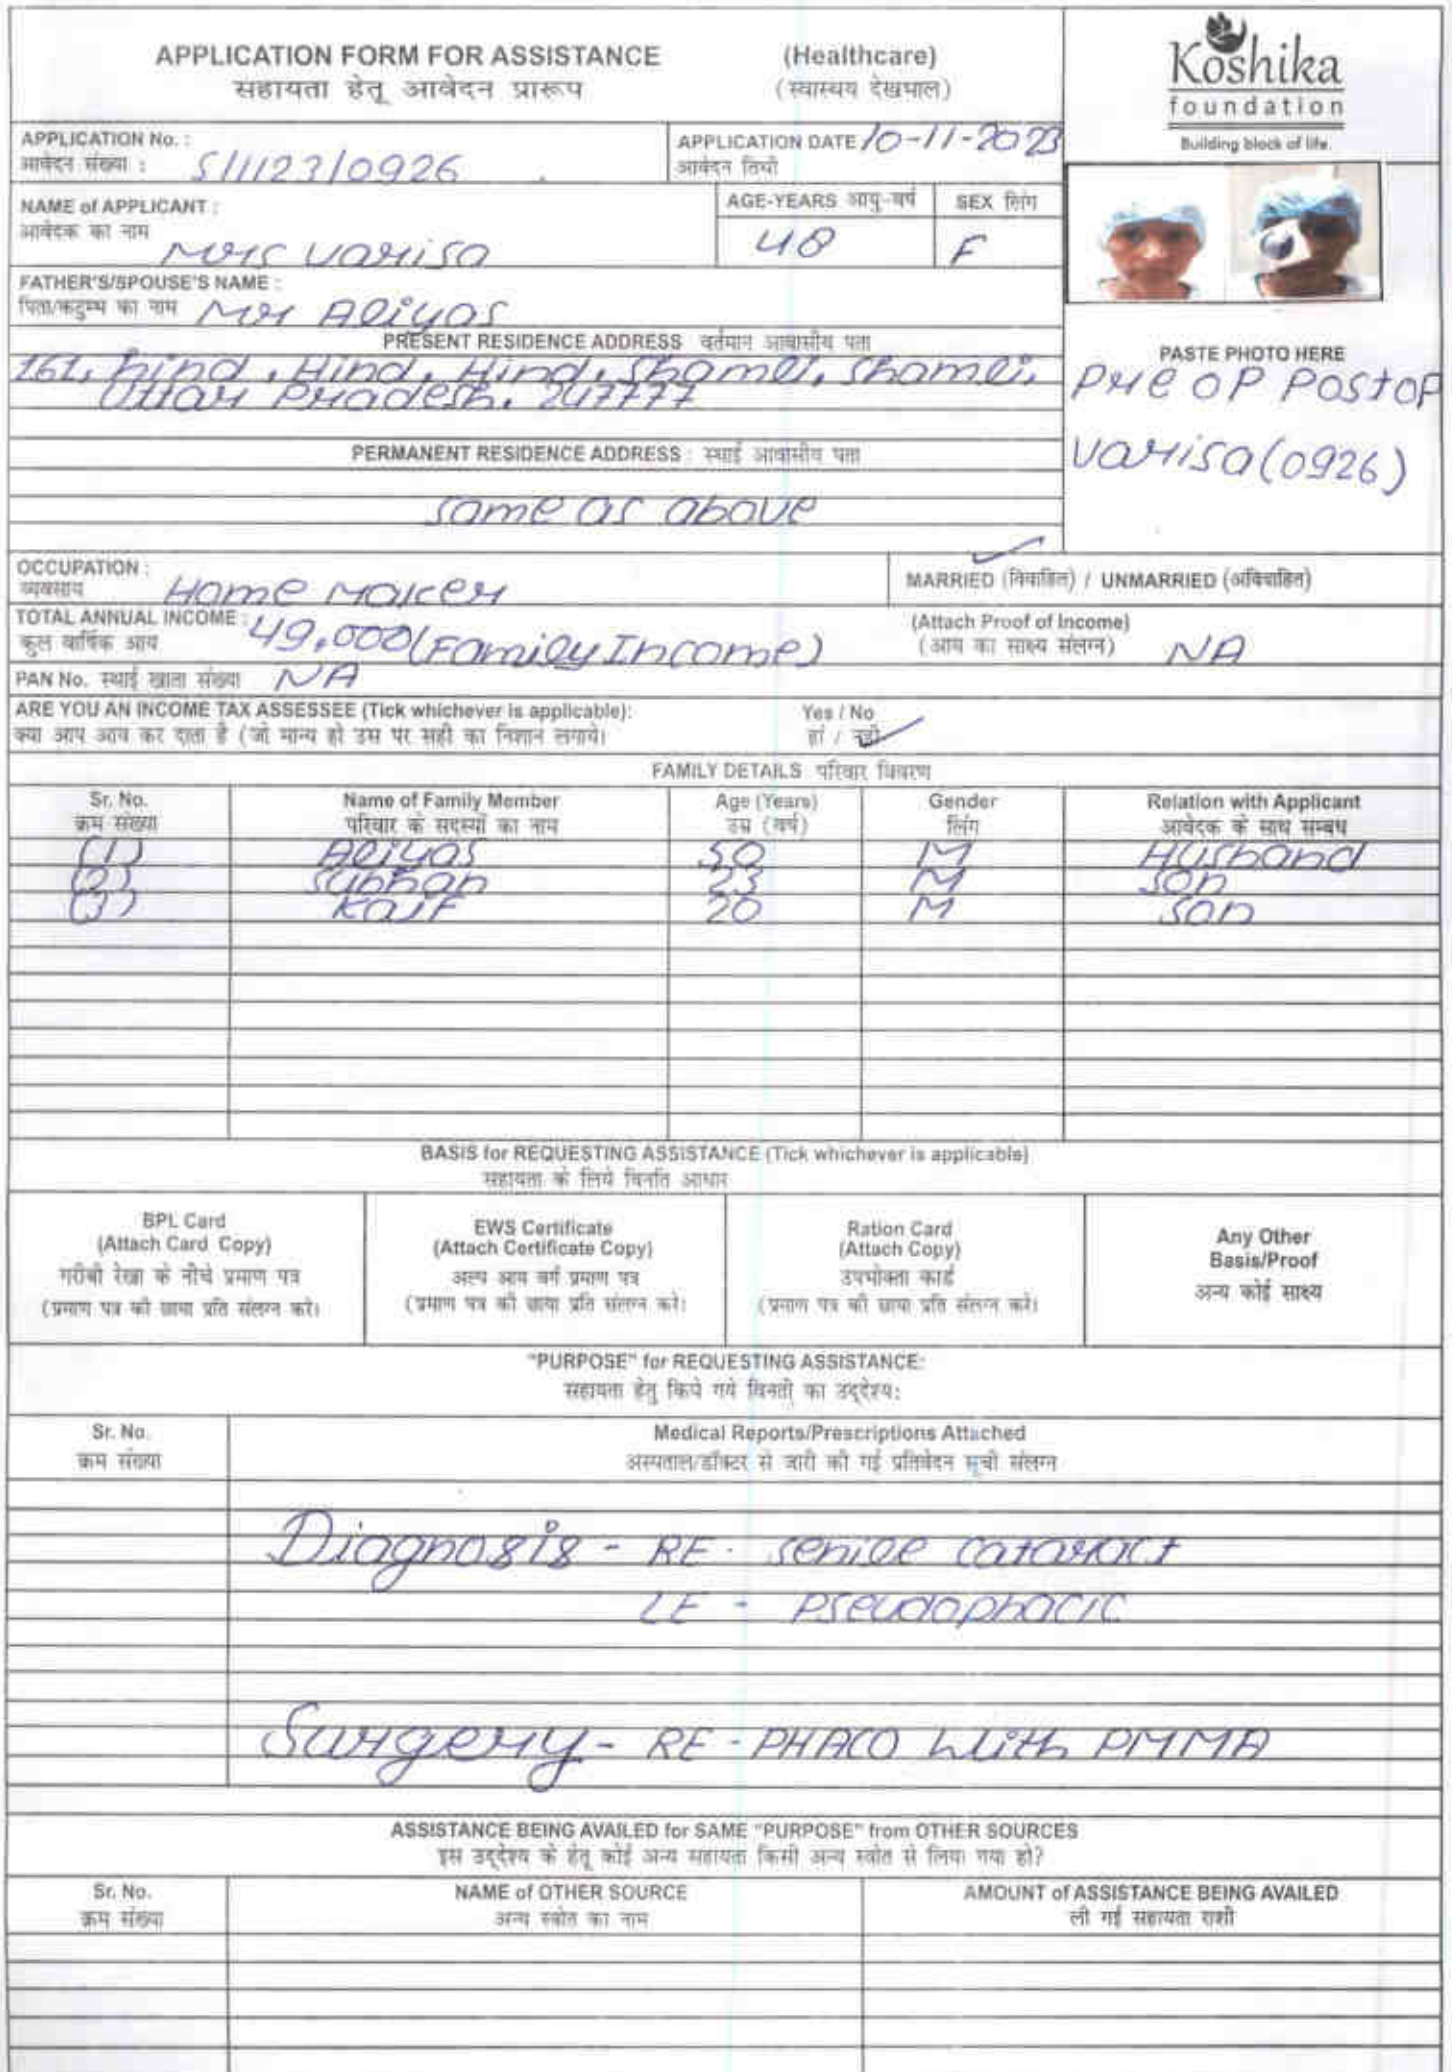 APPLICATION FORM FOR ASSISTANCE (Healthcare)
सहायता हेतू आवेदन प्रारूप (स्वास्थय देखभाल)
Koshika
foundation
Building block of life.
APPLICATION No. :
आवेदन संख्या : S/1123/0926
APPLICATION DATE 10-11-2023
आवेदन तिथी
NAME of APPLICANT :
आवेदक का नाम Mrs Varisa
AGE-YEARS आयु-वर्ष 48
SEX लिंग F
FATHER'S/SPOUSE'S NAME :
पिता/कटुम्ब का नाम Mr Aliyas
PRESENT RESIDENCE ADDRESS वर्तमान आवासीय पता
161, hind, Hind, Hind, Shamli, Shamli,
Uttar Pradesh. 247777
PASTE PHOTO HERE
Pre OP Post OP
Varisa (0926)
PERMANENT RESIDENCE ADDRESS : स्थाई आवासीय पता
same as above
OCCUPATION :
व्यवसाय Home Maker
MARRIED (विवाहित) / UNMARRIED (अविवाहित)
TOTAL ANNUAL INCOME :
कुल वार्षिक आय 49,000 (Family Income)
(Attach Proof of Income)
(आय का साक्ष्य संलग्न) NA
PAN No. स्थाई खाता संख्या NA
ARE YOU AN INCOME TAX ASSESSEE (Tick whichever is applicable): Yes / No
क्या आप आय कर दाता है (जो मान्य हो उस पर सही का निशान लगाये। हां / नहीं
FAMILY DETAILS परिवार विवरण
Sr. No. Name of Family Member Age (Years) Gender Relation with Applicant
क्रम संख्या परिवार के सदस्यों का नाम उम्र (वर्ष) लिंग आवेदक के साथ सम्बध
(1) Aliyas 50 M Husband
(2) Subhan 23 M Son
(3) Kaif 20 M Son
BASIS for REQUESTING ASSISTANCE (Tick whichever is applicable)
सहायता के लिये विनति आधार
BPL Card
(Attach Card Copy)
गरीबी रेखा के नीचे प्रमाण पत्र
(प्रमाण पत्र की छाया प्रति संलग्न करे।
EWS Certificate
(Attach Certificate Copy)
अल्प आय वर्ग प्रमाण पत्र
(प्रमाण पत्र की छाया प्रति संलग्न करे।
Ration Card
(Attach Copy)
उपभोक्ता कार्ड
(प्रमाण पत्र की छाया प्रति संलग्न करे।
Any Other
Basis/Proof
अन्य कोई साक्ष्य
"PURPOSE" for REQUESTING ASSISTANCE:
सहायता हेतु किये गये विनती का उद्देश्य:
Sr. No. Medical Reports/Prescriptions Attached
क्रम संख्या अस्पताल/डॉक्टर से जारी की गई प्रतिवेदन सूची संलग्न
Diagnosis - RE - senile cataract
LE - Pseudophacic
Surgery - RE - PHACO with PMMA
ASSISTANCE BEING AVAILED for SAME "PURPOSE" from OTHER SOURCES
इस उद्देश्य के हेतू कोई अन्य सहायता किसी अन्य स्त्रोत से लिया गया हो?
Sr. No. NAME of OTHER SOURCE AMOUNT of ASSISTANCE BEING AVAILED
क्रम संख्या अन्य स्त्रोत का नाम ली गई सहायता राशी